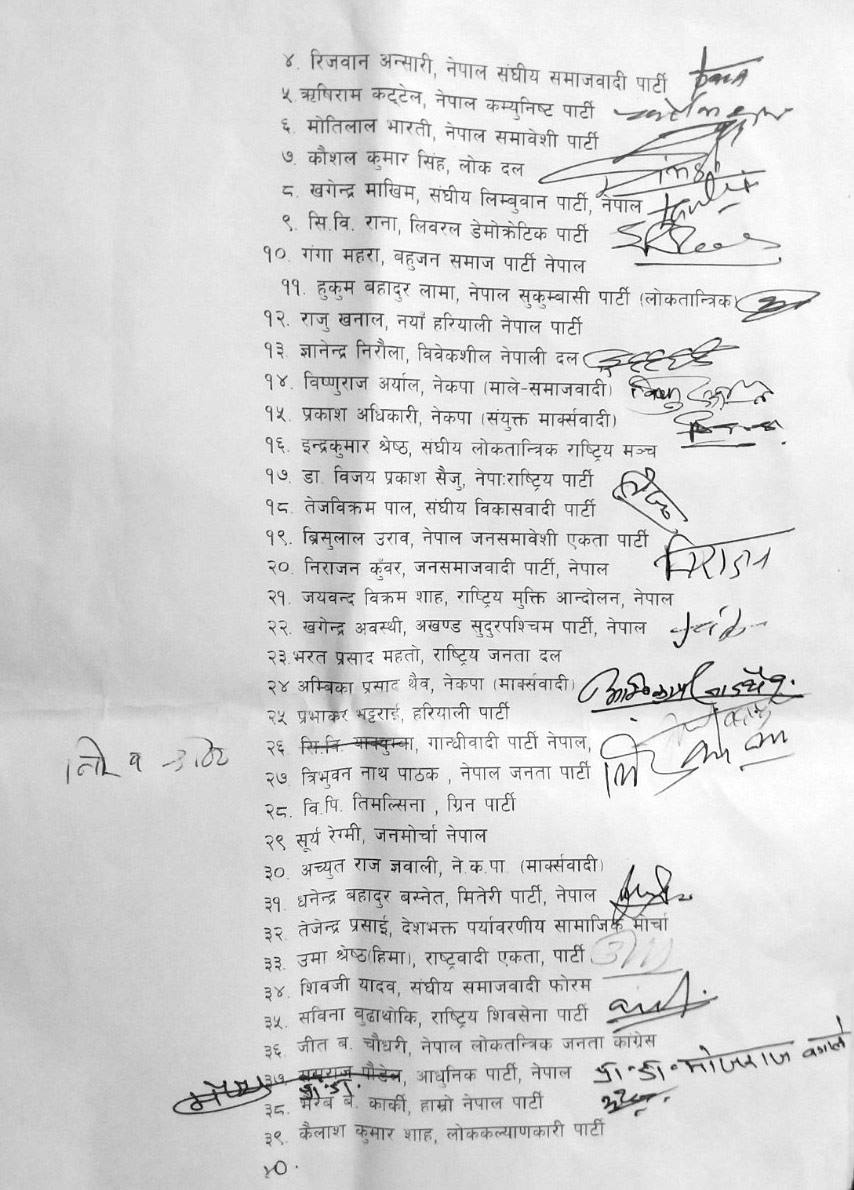 ४. रिजवान अन्सारी, नेपाल संघीय समाजवादी पार्टी
५. ऋषिराम कट्टेल, नेपाल कम्युनिष्ट पार्टी
६. मोतिलाल भारती, नेपाल समावेशी पार्टी
७. कौशल कुमार सिंह, लोक दल
८. खगेन्द्र माखिम, संघीय लिम्बुवान पार्टी, नेपाल
९. सि.वि. राना, लिवरल डेमोक्रेटिक पार्टी
१०. गंगा महरा, बहुजन समाज पार्टी नेपाल
११. हुकुम बहादुर लामा, नेपाल सुकुम्बासी पार्टी (लोकतान्त्रिक)
१२. राजु खनाल, नयाँ हरियाली नेपाल पार्टी
१३. ज्ञानेन्द्र निरौला, विवेकशील नेपाली दल
१४. विष्णुराज अर्याल, नेकपा (माले-समाजवादी)
१५. प्रकाश अधिकारी, नेकपा (संयुक्त मार्क्सवादी)
१६. इन्द्रकुमार श्रेष्ठ, संघीय लोकतान्त्रिक राष्ट्रिय मञ्च
१७. डा. विजय प्रकाश सैजु, नेपाःराष्ट्रिय पार्टी
१८. तेजविक्रम पाल, संघीय विकासवादी पार्टी
१९. ब्रिसुलाल उराव, नेपाल जनसमावेशी एकता पार्टी
२०. निराजन कुँवर, जनसमाजवादी पार्टी, नेपाल निराजन
२१. जयवन्द विक्रम शाह, राष्ट्रिय मुक्ति आन्दोलन, नेपाल
२२. खगेन्द्र अवस्थी, अखण्ड सुदुरपश्चिम पार्टी, नेपाल
२३.भरत प्रसाद महतो, राष्ट्रिय जनता दल
२४ अम्बिका प्रसाद थैव, नेकपा (मार्क्सवादी)
२५ प्रभाकर भट्टराई, हरियाली पार्टी
२६ गान्धीवादी पार्टी नेपाल,
२७. त्रिभुवन नाथ पाठक , नेपाल जनता पार्टी
२८. वि.पि. तिमल्सिना , ग्रिन पार्टी
२९ सूर्य रेग्मी, जनमोर्चा नेपाल
३०. अच्युत राज ज्ञवाली, ने.क.पा. (मार्क्सवादी)
३१. धनेन्द्र बहादुर बस्नेत, मितेरी पार्टी, नेपाल
३२. तेजेन्द्र प्रसाई, देशभक्त पर्यावरणीय सामाजिक मोर्चा
३३. उमा श्रेष्ठ(हिमा), राष्ट्रवादी एकता, पार्टी
३४. शिवजी यादव, संघीय समाजवादी फोरम
३५. सविना बुढाथोकि, राष्ट्रिय शिवसेना पार्टी
३६. जीत ब. चौधरी, नेपाल लोकतन्त्रिक जनता कांग्रेस
३७ पौडेल, आधुनिक पार्टी, नेपाल प्रा.डा. भोजराज
प्रा.डा.
३८. भैरब बे. कार्की, हाम्रो नेपाल पार्टी
३९. कैलाश कुमार शाह, लोककल्याणकारी पार्टी
४०.